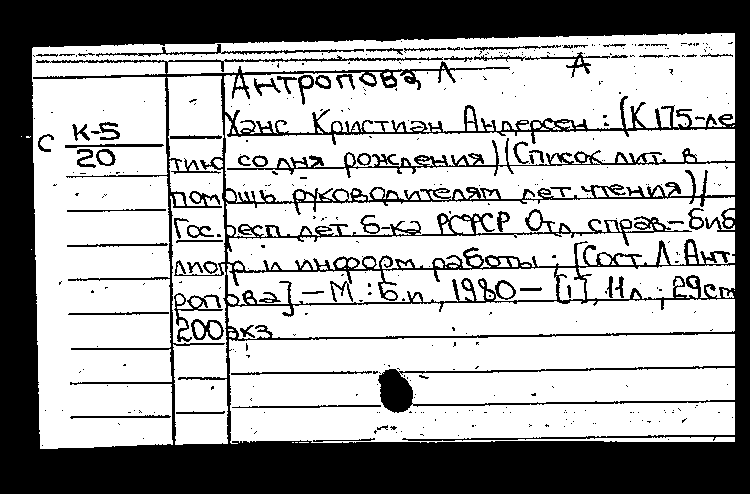 Антропова, Л А
Хэнс Кристиэн Андерсен : (К 175-ле
с К-5
20
тию со дня рождения) (Список лит. в
помощь руководителям дет. чтения) /
Гос. респ. дет. б-ка РСФСР Отд. справ.-биб
лиогр и информ. работы ; [Сост. Л. Ант-
ропова]. - М. : Б.и., 1980 - [1], 11 л. ; 29 см
200 экз